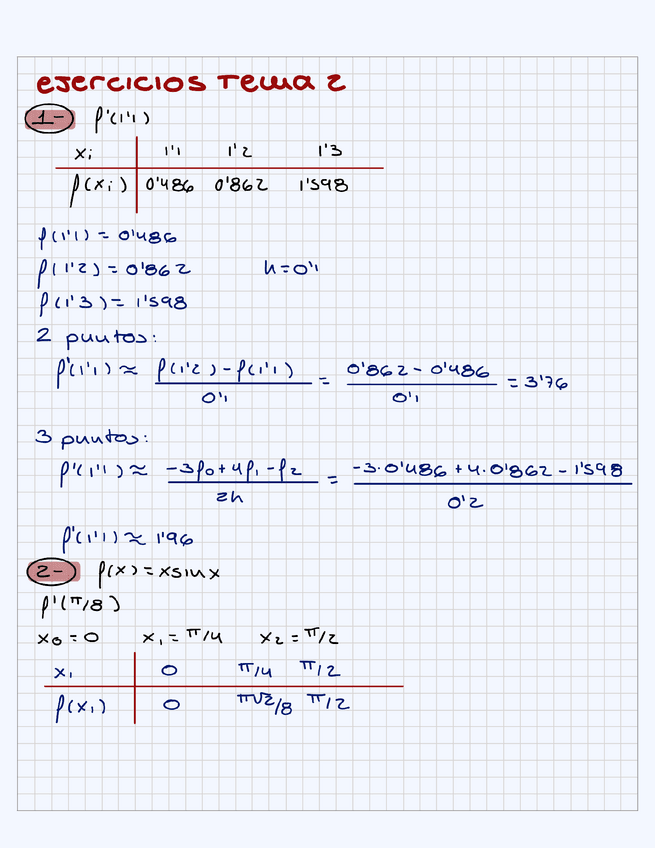 ejercicios Tema 2
1- f'(1'1)
xi 1'1 1'2 1'3
f(xi) 0'486 0'862 1'598
f(1'1) = 0'486
f(1'2) = 0'862 h = 0'1
f(1'3) = 1'598
2 puntos:
f'(1'1) ≈ (f(1'2) - f(1'1)) / 0'1 = (0'862 - 0'486) / 0'1 = 3'76
3 puntos:
f'(1'1) ≈ (-3f0 + 4f1 - f2) / 2h = (-3·0'486 + 4·0'862 - 1'598) / 0'2
f'(1'1) ≈ 1'96
2- f(x) = xsinx
f'(π/8)
x0 = 0 x1 = π/4 x2 = π/2
x1 0 π/4 π/2
f(x1) 0 π√2/8 π/2